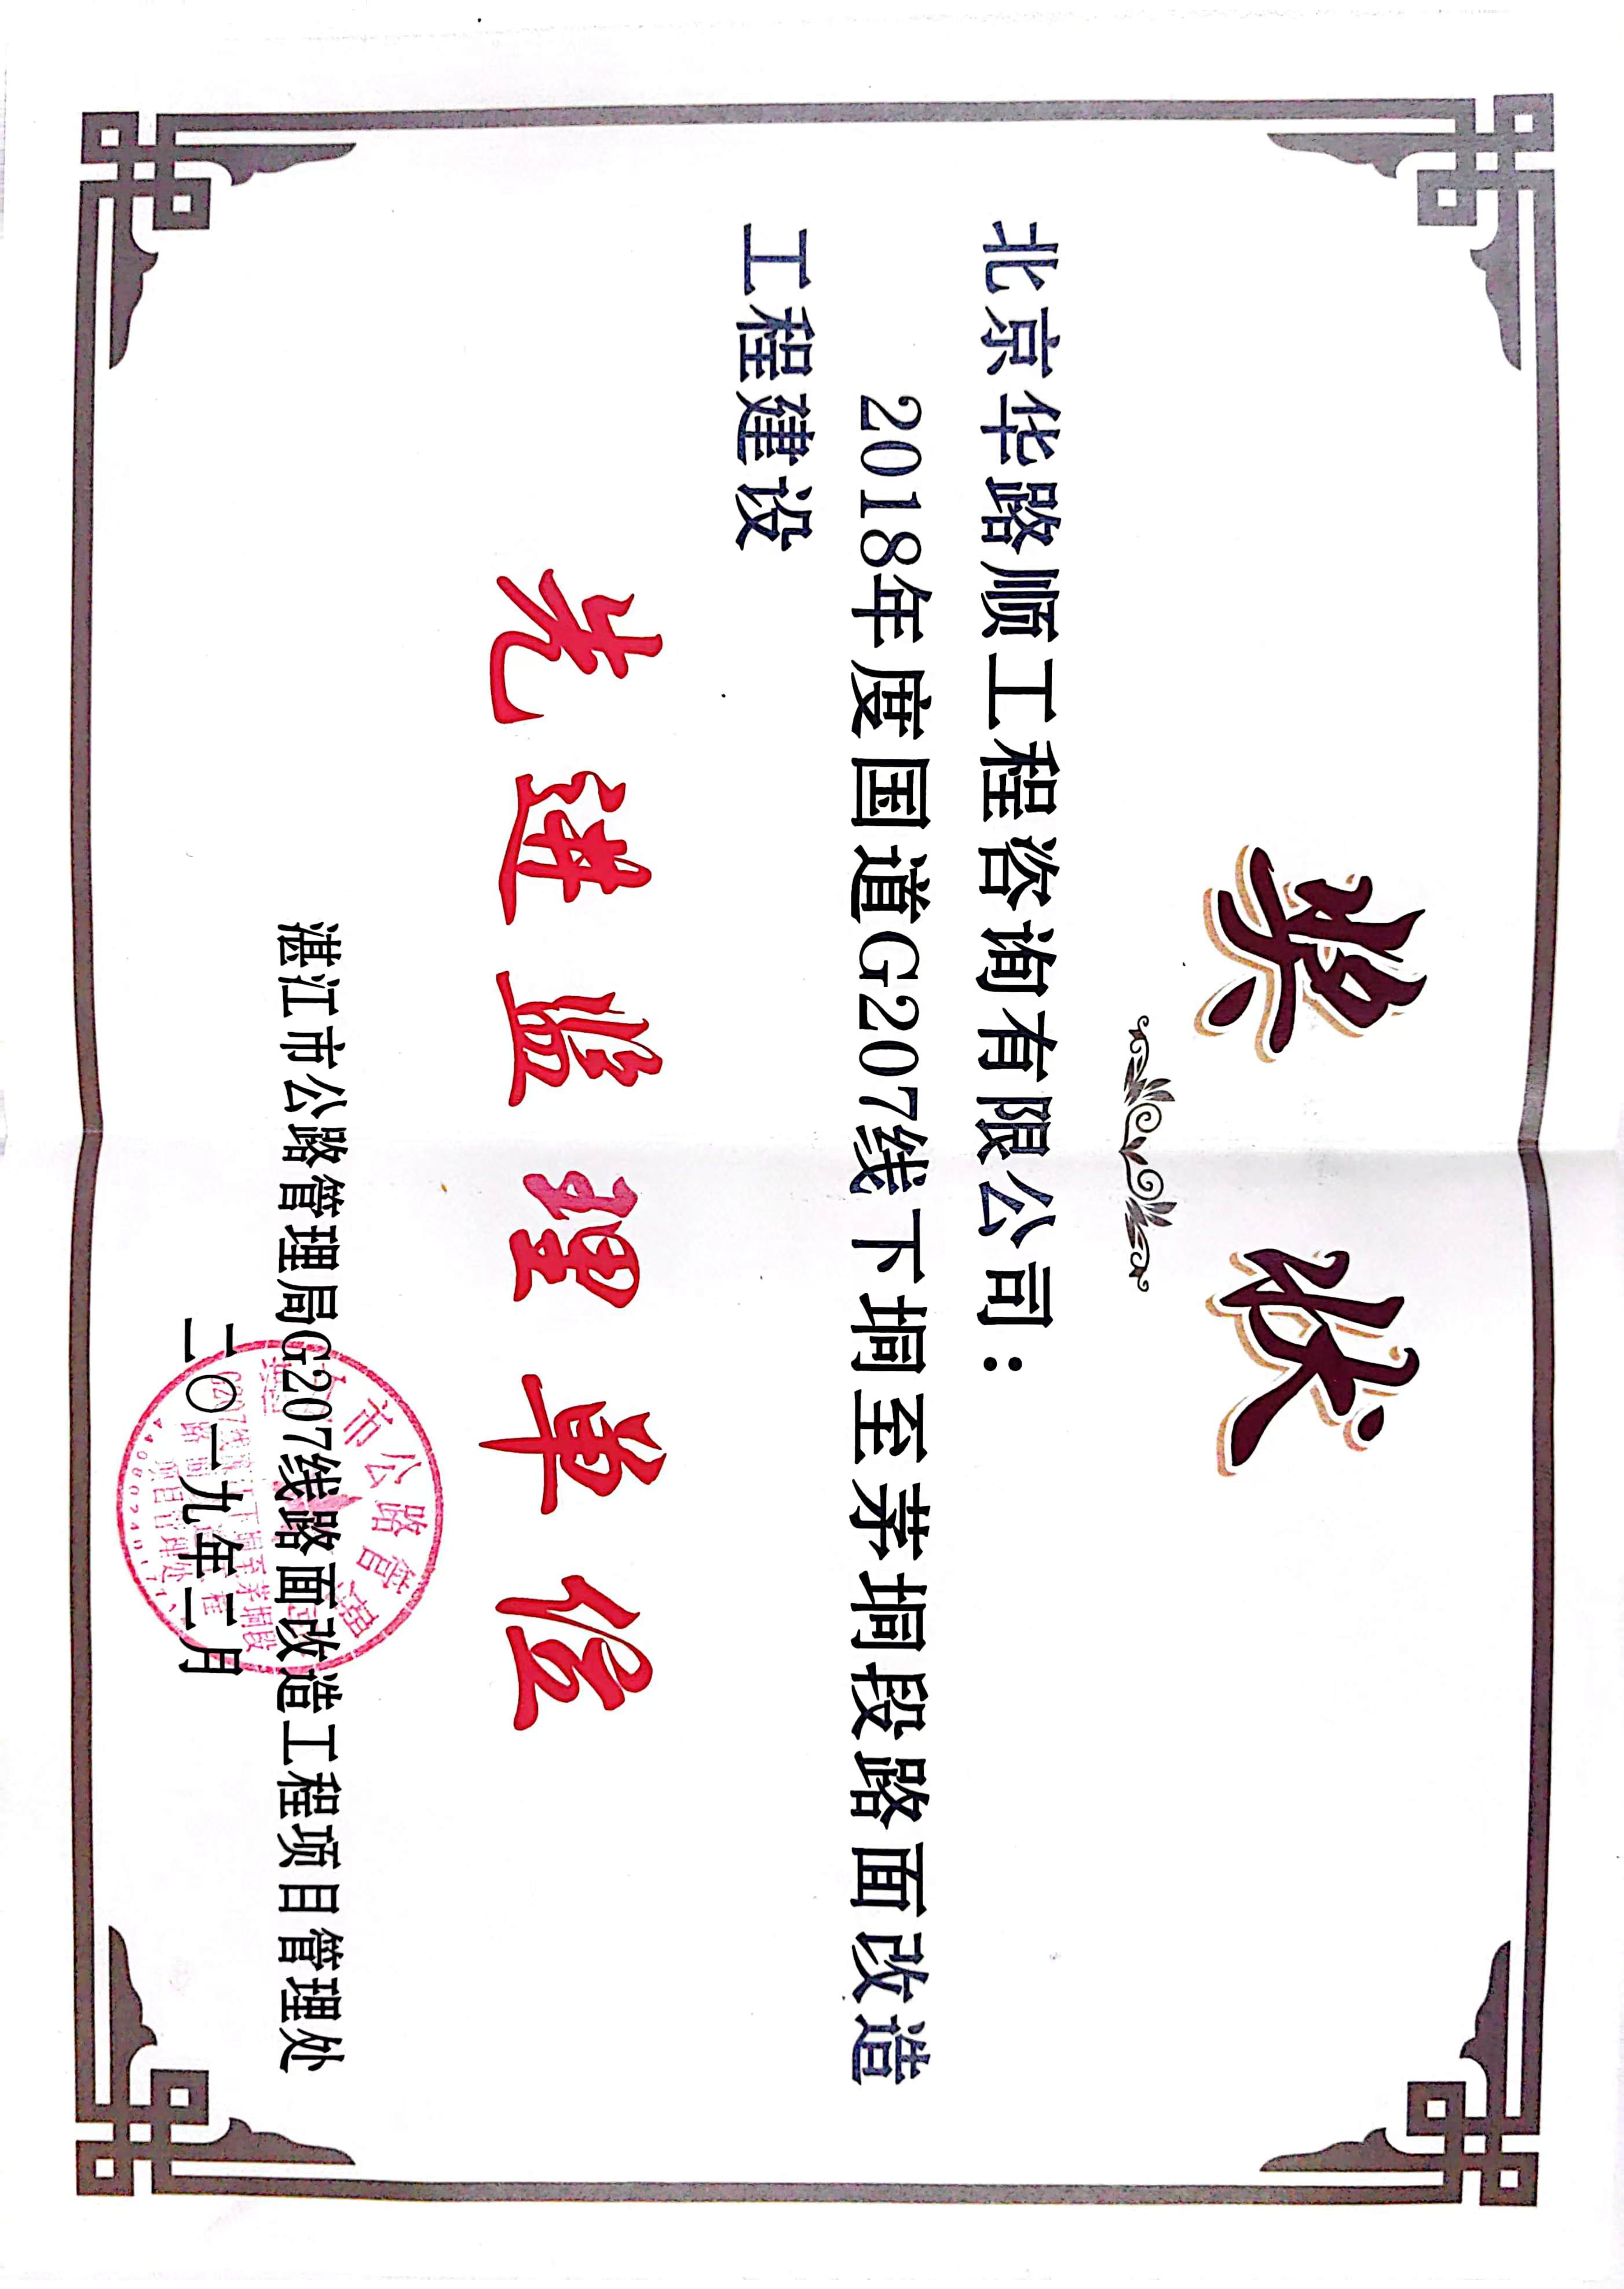 奖状
北京华路顺工程咨询有限公司：
2018年度国道G207线下垌至茅垌段路面改造
工程建设
先进监理单位
湛江市公路管理局G207线路面改造工程项目管理处
二〇一九年二月
市公路管理